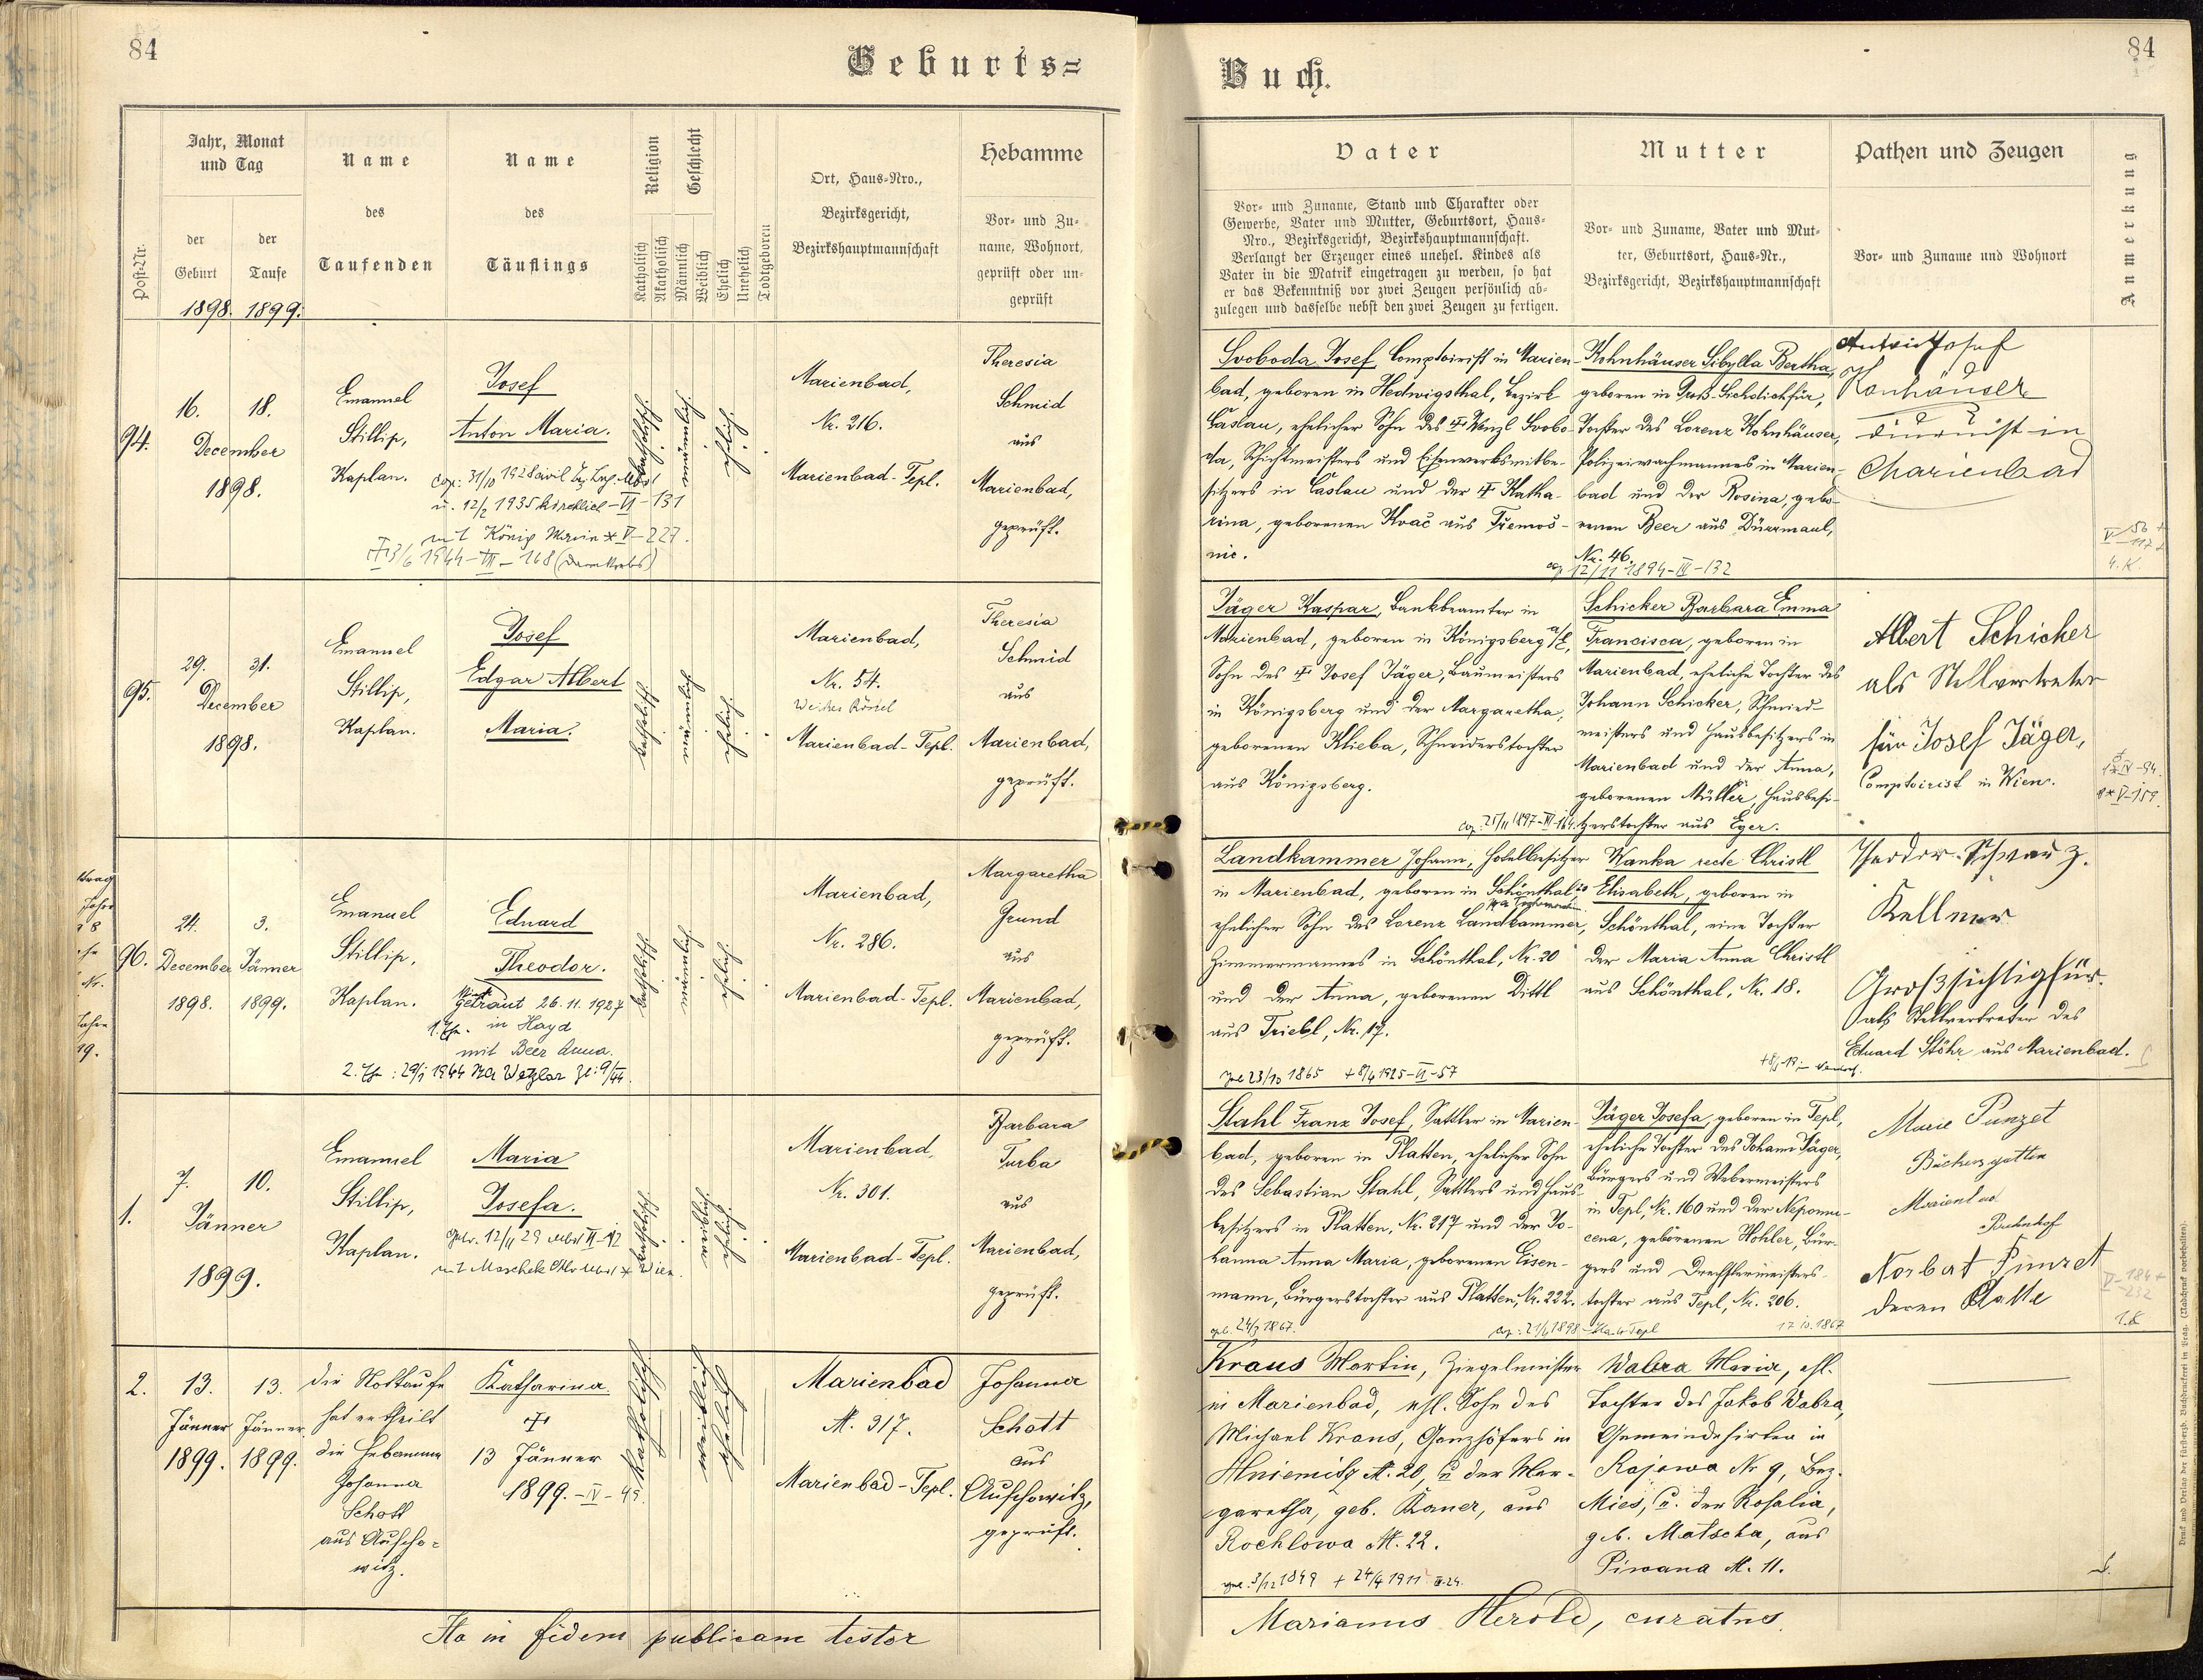 84
Geburts=
Jahr, Monat
und Tag
Name
Name
Religion
Geschlecht
Ort, Haus=Nro.,
Bezirksgericht,
Bezirkshauptmannschaft
Hebamme
Post=Nr.
der
Geburt
der
Taufe
des
Taufenden
des
Täuflings
Katholisch
Akatholisch
Männlich
Weiblich
Ehelich
Unehelich
Todtgeboren
Vor= und Zu=
name, Wohnort,
geprüft oder un=
geprüft
1898. 1899.
94.
16. 18.
December
1898.
Emanuel
Stillip,
Kaplan.
Josef
Anton Maria.
u. 12/2 1935 kirchlich - VI - 131
mit König Maria * V - 227.
katholisch
männlich
ehelich
Marienbad,
Nr. 216.
Marienbad-Tepl.
Theresia
Schmid
aus
Marienbad,
geprüft.
95.
29. 31.
December
1898.
Emanuel
Stillip,
Kaplan.
Josef
Edgar Albert
Maria.
katholisch
männlich
ehelich
Marienbad,
Nr. 54.
Marienbad-Tepl.
Theresia
Schmid
aus
Marienbad,
geprüft.
96.
24. 3.
December Jänner
1898. 1899.
Emanuel
Stillip,
Kaplan.
Eduard
Theodor.
Getraut 26.11.1927
in Hayd
mit Beer Anna.
katholisch
männlich
ehelich
Marienbad,
Nr. 286.
Marienbad-Tepl.
Margaretha
Grund
aus
Marienbad,
geprüft.
1.
7. 10.
Jänner
1899.
Emanuel
Stillip,
Kaplan.
Maria
Josefa.
katholisch
weiblich
ehelich
Marienbad,
Nr. 301.
Marienbad-Tepl.
Barbara
Turba
aus
Marienbad,
geprüft.
2.
13. 13.
Jänner Jänner
1899. 1899.
die Nottaufe
hat ertheilt
die Hebamme
Johanna
Schott
aus Auscho=
witz.
Katharina.
13 Jänner
1899. - IV - 49.
katholisch
weiblich
ehelich
Marienbad
N. 317.
Marienbad-Tepl.
Johanna
Schott
aus
Auschowitz,
geprüft.
Ita in fidem publicam testor
84
Buch.
Vater
Mutter
Pathen und Zeugen
Anmerkung
Vor= und Zuname, Stand und Charakter oder
Gewerbe, Vater und Mutter, Geburtsort, Haus=
Nro., Bezirksgericht, Bezirkshauptmannschaft.
Verlangt der Erzeuger eines unehel. Kindes als
Vater in die Matrik eingetragen zu werden, so hat
er das Bekenntniß vor zwei Zeugen persönlich ab=
zulegen und dasselbe nebst den zwei Zeugen zu fertigen.
Vor= und Zuname, Vater und Mut=
ter, Geburtsort, Haus=Nr.,
Bezirksgericht, Bezirkshauptmannschaft
Vor= und Zuname und Wohnort
Svoboda Josef, Comptoirist in Marien-
bad, geboren in Hedwigsthal, Bezirk
Časlau, ehelicher Sohn des Wenzl Svobo-
da, Schichtmeisters und Eisenwerksmitbe-
sitzers in Časlau und der Katha-
rina, geborenen Kvač aus Třemoš-
nic.
Kohnhäuser Sibylla Bertha,
geboren in Groß-Sichdichfür,
Tochter des Lorenz Kohnhäuser,
Polizeiwachmannes in Marien-
bad und der Rosina, gebo-
renen Beer aus Dürrmaul,
Nr. 46.
12/11 1894 - IV - 132
Josef
Konhäuser
Diurnist in
Marienbad
Jäger Kaspar, Bankbeamter in
Marienbad, geboren in Königsberg a/E,
Sohn des Josef Jäger, Baumeisters
in Königsberg und der Margaretha,
geborenen Klieba, Schneiderstochter
aus Königsberg.
Schicker Barbara Emma
Francisca, geboren in
Marienbad, eheliche Tochter des
Johann Schicker, Schmied-
meisters und Hausbesitzers in
Marienbad und der Anna,
geborenen Müller, Hausbesi-
tzerstochter aus Eger.
Albert Schicker
als Stellvertreter
für Josef Jäger,
Comptoirist in Wien.
Landkammer Johann, Hotelbesitzer
in Marienbad, geboren in Schönthal 20
ehelicher Sohn des Lorenz Landkammer,
Zimmermannes in Schönthal, Nr. 20
und der Anna, geborenen Dittl
aus Triebl, Nr. 17.
23/10 1865 + 8/4 1925 - VI - 57
Wanka recte Christl
Elisabeth, geboren in
Schönthal, eine Tochter
der Maria Anna Christl
aus Schönthal, Nr. 18.
Theodor Schwarz.
Kellner
Großsichtigfür.
als Stellvertreter des
Eduard Stöhr aus Marienbad.
Stahl Franz Josef, Sattler in Marien-
bad, geboren in Platten, ehelicher Sohn
des Sebastian Stahl, Sattlers und Haus-
besitzers in Platten, Nr. 217 und der Jo-
hanna Anna Maria, geborenen Eisen-
mann, Bürgerstochter aus Platten, Nr. 222.
Jäger Josefa, geboren in Tepl,
eheliche Tochter des Johann Jäger,
Bürgers und Webermeisters
in Tepl, Nr. 160 und der Nepomu-
cena, geborenen Hohler, Bür-
gers und Drechslermeisters-
tochter aus Tepl, Nr. 206.
Marie Punzet
Marienbad
Bahnhof
Norbert Punzet
deren Gatte
Kraus Martin, Ziegelmeister
in Marienbad, ehl. Sohn des
Michael Kraus, Ganzhöfers in
Hniemitz N. 20, u. der Mar-
garetha, geb. Bauer, aus
Rochlowa N. 22.
3/12 1849 + 24/4 1911
Wabra Maria, ehl.
Tochter des Jakob Wabra,
Gemeindehirten in
Rajowa Nr 9, Bez.
Mies, u. der Rosalia,
geb. Matscha, aus
Piwana N. 11.
Marianus Herold, curatus.